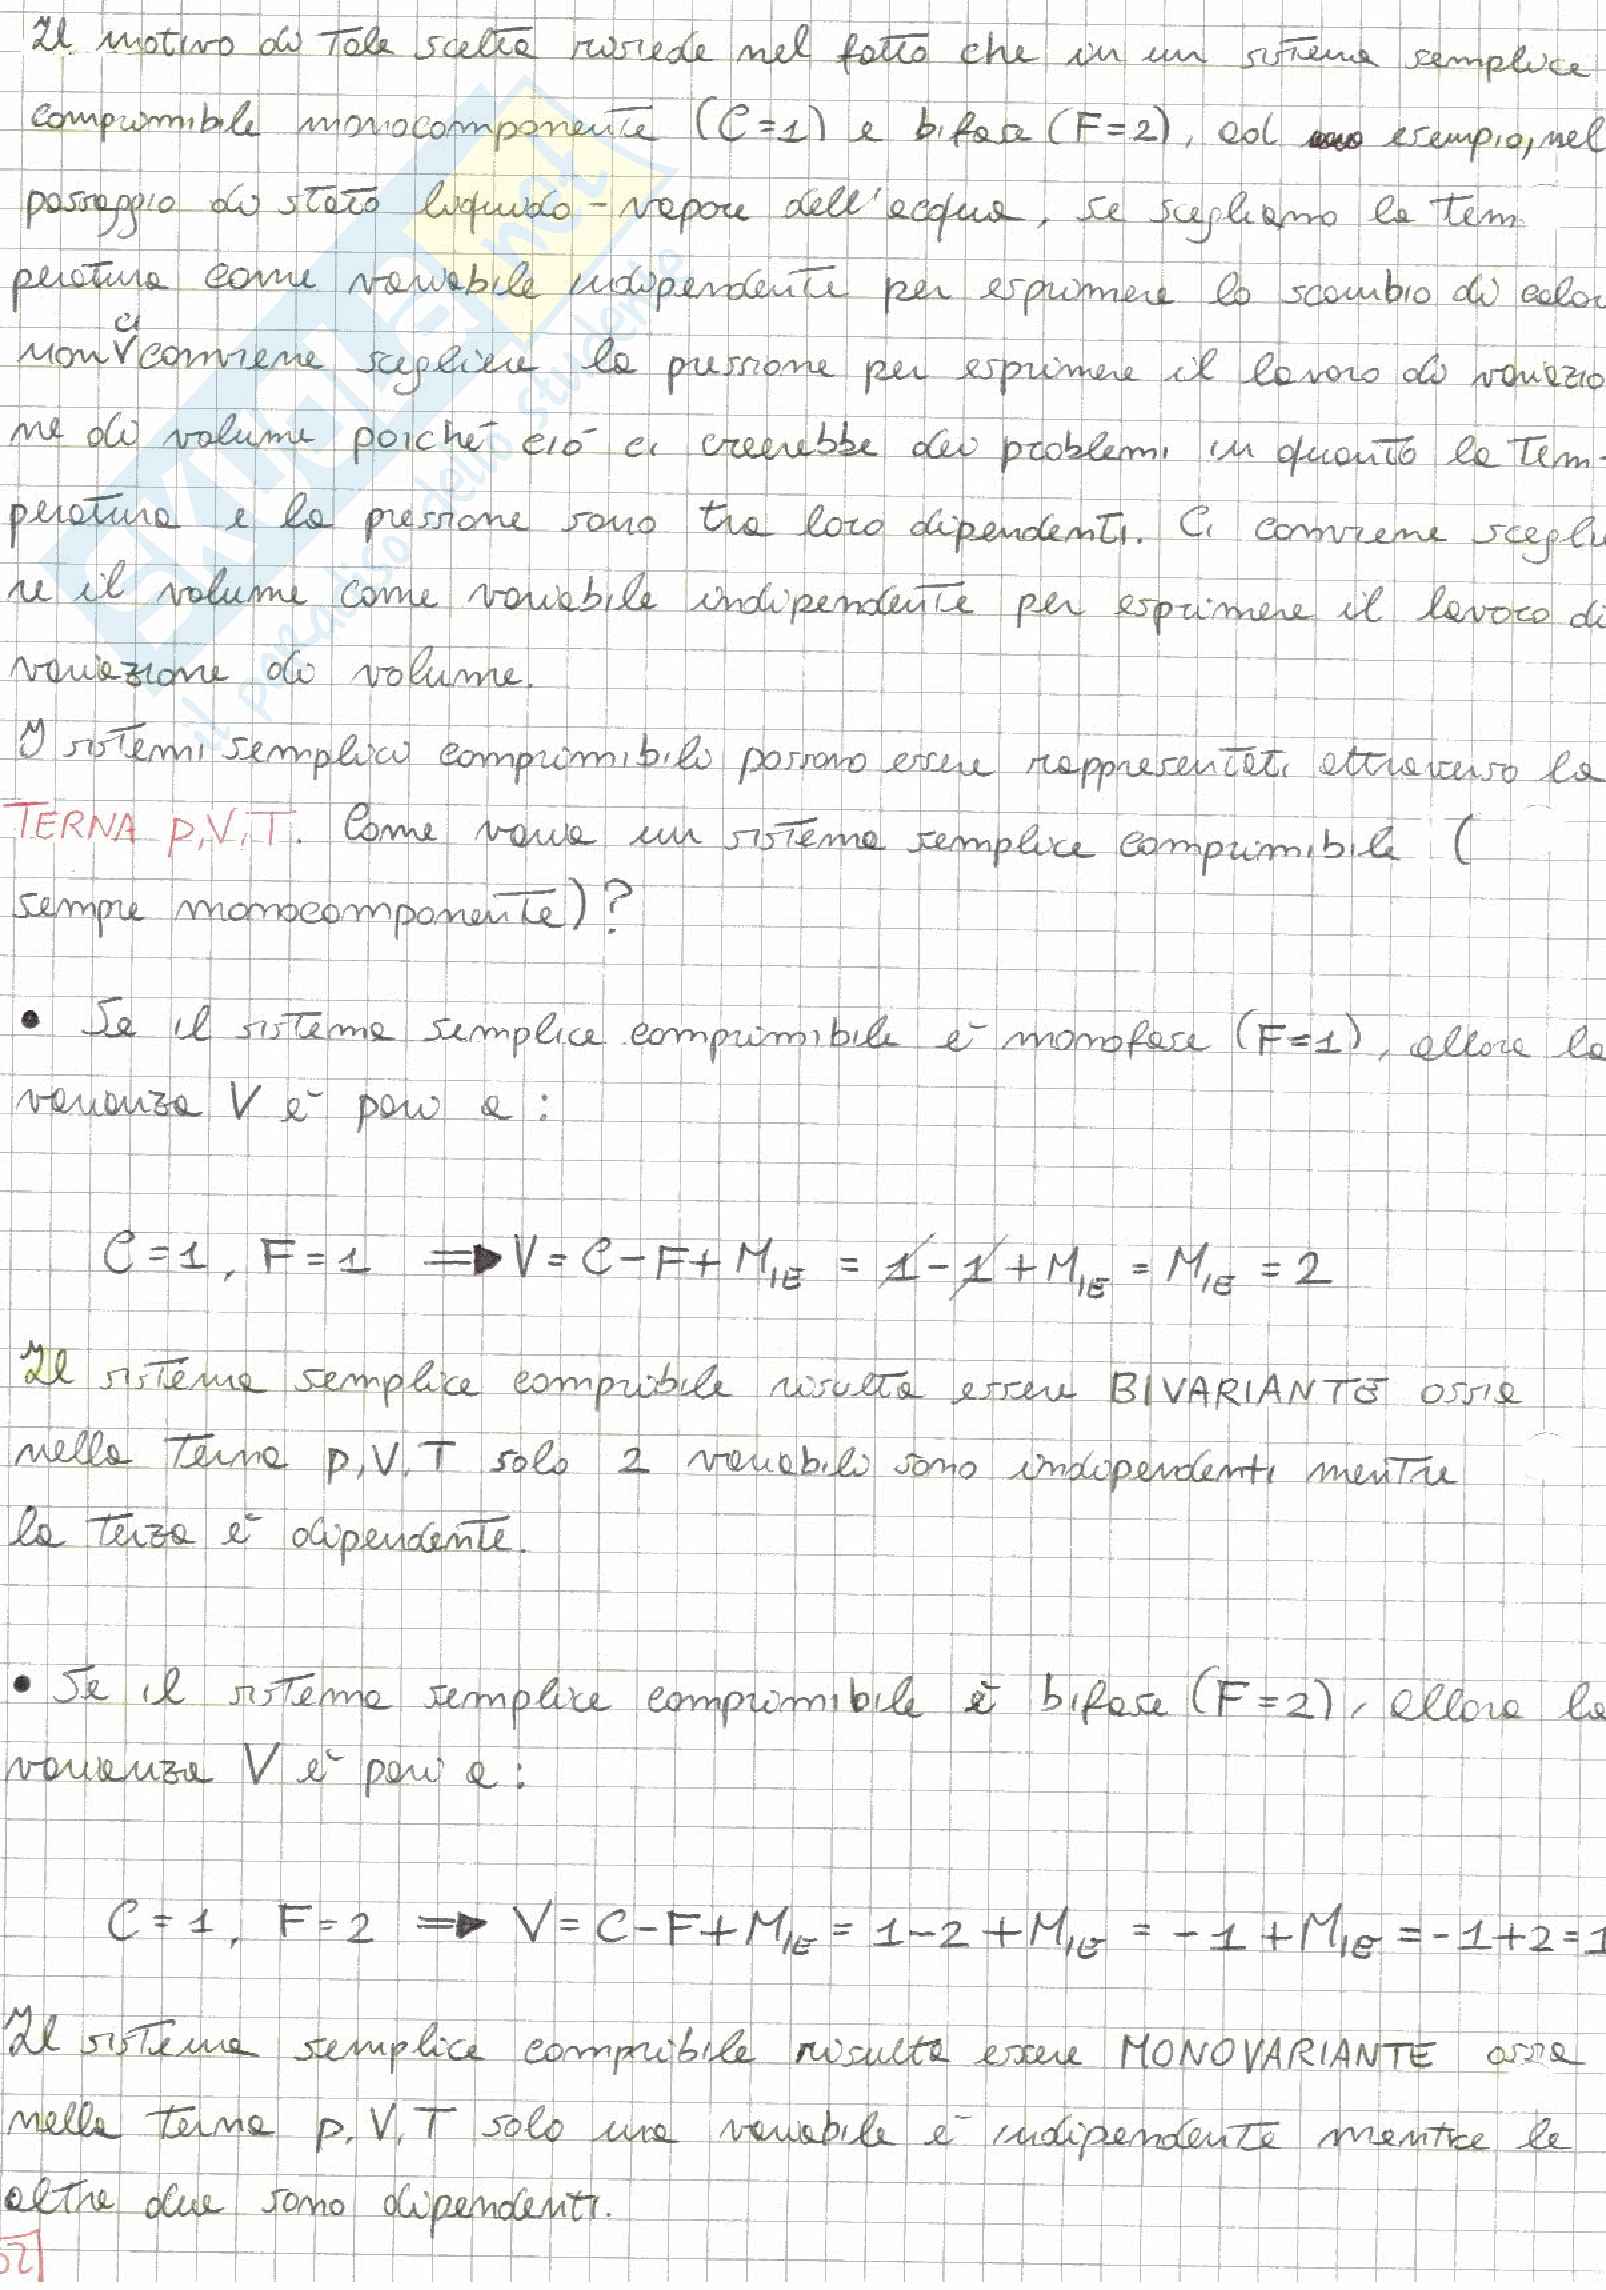 Il motivo di tale scelta risiede nel fatto che in un sistema semplice
comprimibile monocomponente (C=1) e bifase (F=2), ad esempio, nel
passaggio di stato liquido-vapore dell'acqua, se scegliamo la tem
peratura come variabile indipendente per esprimere lo scambio di calor
non ci conviene scegliere la pressione per esprimere il lavoro di variazio
ne di volume poiché ciò ci creerebbe dei problemi in quanto la tem-
peratura e la pressione sono tra loro dipendenti. Ci conviene sceglie
re il volume come variabile indipendente per esprimere il lavoro di
variazione di volume.
I sistemi semplici comprimibili possono essere rappresentati attraverso la
TERNA p,V,T. Come varia un sistema semplice comprimibile (
sempre monocomponente)?
• Se il sistema semplice comprimibile è monofase (F=1), allora la
varianza V è pari a:
C=1, F=1 ⇒ V=C-F+M_IE = 1-1+M_IE = M_IE = 2
Il sistema semplice compribile risulta essere BIVARIANTE ossia
nella terna p,V,T solo 2 variabili sono indipendenti mentre
la terza è dipendente.
• Se il sistema semplice comprimibile è bifase (F=2), allora la
varianza V è pari a:
C=1, F=2 ⇒ V=C-F+M_IE = 1-2+M_IE = -1+M_IE = -1+2=1
Il sistema semplice compribile risulta essere MONOVARIANTE ossia
nella terna p,V,T solo una variabile è indipendente mentre le
altre due sono dipendenti.
52
SKUOLA.net
il paradiso dello studente